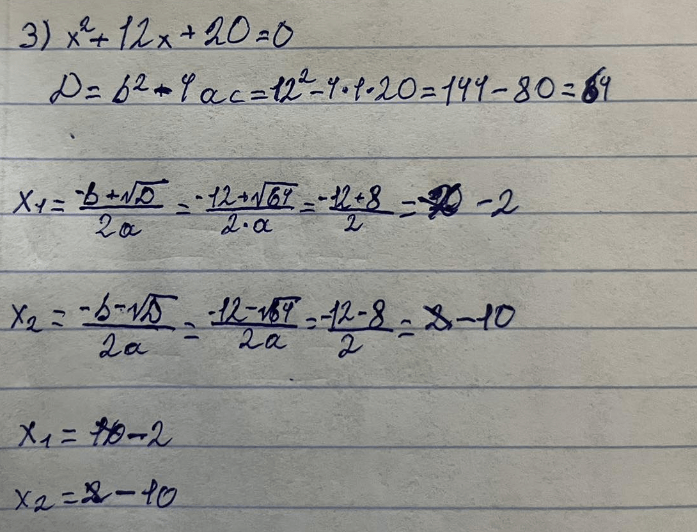 3) x²+12x+20=0
D=b²-4ac=12²-4·1·20=144-80=64
x₁=(-b+√D)/(2a)=(-12+√64)/(2·a)=(-12+8)/2=-2
x₂=(-b-√D)/(2a)=(-12-√64)/(2a)=(-12-8)/2=-10
x₁=-2
x₂=-10